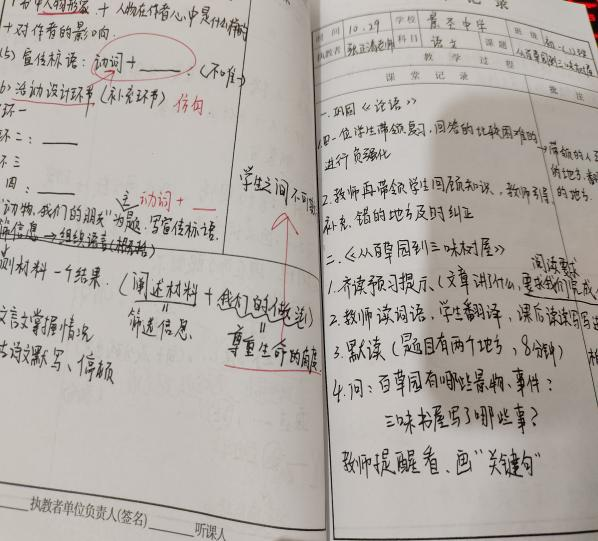 书中人物形象 + 人物在作者心中是什么样的
+ 对作者的影响
(5) 宣传标语：动词 + ____ 。(不唯一)
(6) 活动设计环节 (补充环节) 仿句
环一
环二：____
环三
四：____
主动词 + __
"动物，我们的朋友"为题，写宣传标语。
筛信息 → 组织语言
材料一个结果。(阐述材料 + 我们的做法)
筛选信息
尊重生命的角度
学生之间不可
文言文掌握情况
古诗文默写、停顿
____执教者单位负责人(签名)____听课人
记录
时间 10.29 学校 景苏中学 班级
执教者 科目 语文 课题 从百草园到三味书屋
教学过程
课堂记录 批注
一、巩固《论语》
1. 一位学生带领复习，回答的比较困难的
进行负强化
带领的人
的地方，
的地方.
2. 教师再带领学生回顾知识，教师
补充，错的地方及时纠正
二、《从百草园到三味书屋》
阅读要求
1. 齐读预习提示、(文章讲了什么，要求我们完成
2. 教师读词语，学生翻译，课后读读写
3. 默读 (题目有两个地方，8分钟)
4. 问：百草园有哪些景物、事件？
三味书屋写了哪些事？
教师提醒看、画"关键句"